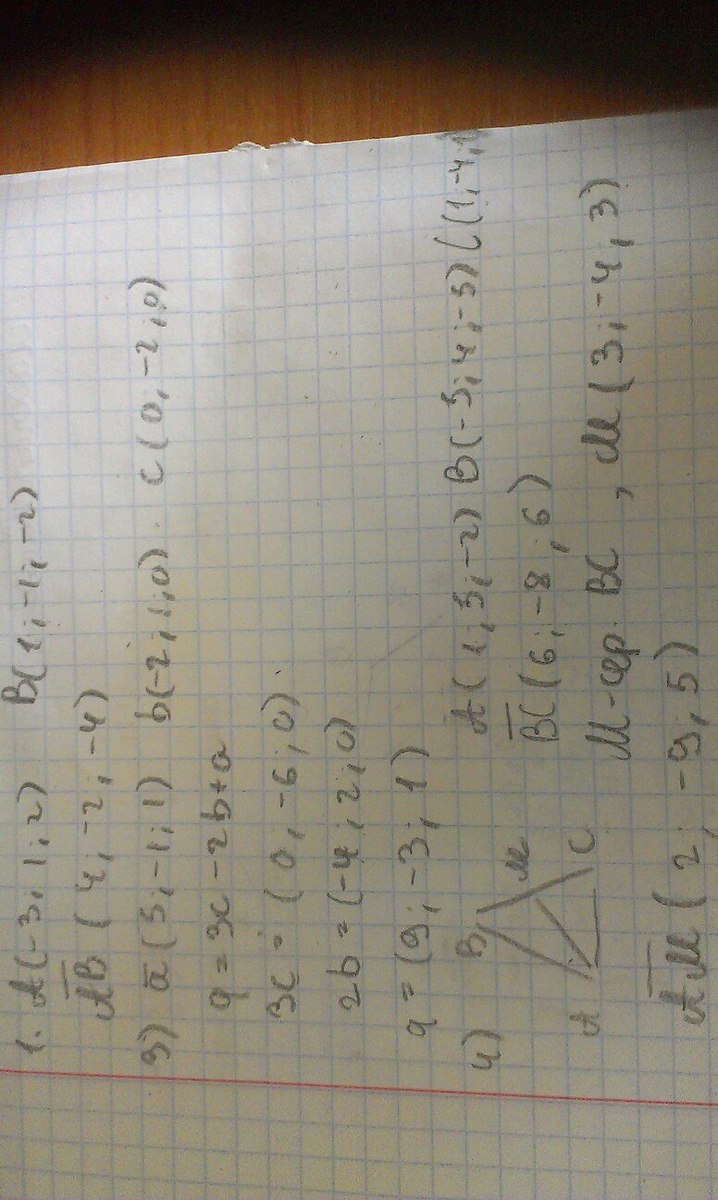 1. A(-3; 1; 2) B(1; -1; -2)
AB (4; -2; -4)
3) a (5; -1; 1) b(-2; 1; 0) c(0; -2; 0)
q = 3c - 2b + a
3c = (0; -6; 0)
2b = (-4; 2; 0)
q = (9; -3; 1)
4) A B M C
A(1; 5; -2) B(-5; 4; -5) C(1; -4; 1
BC (6; -8; 6)
M - сер. BC, M(3; -4; 3)
AM (2; -9; 5)